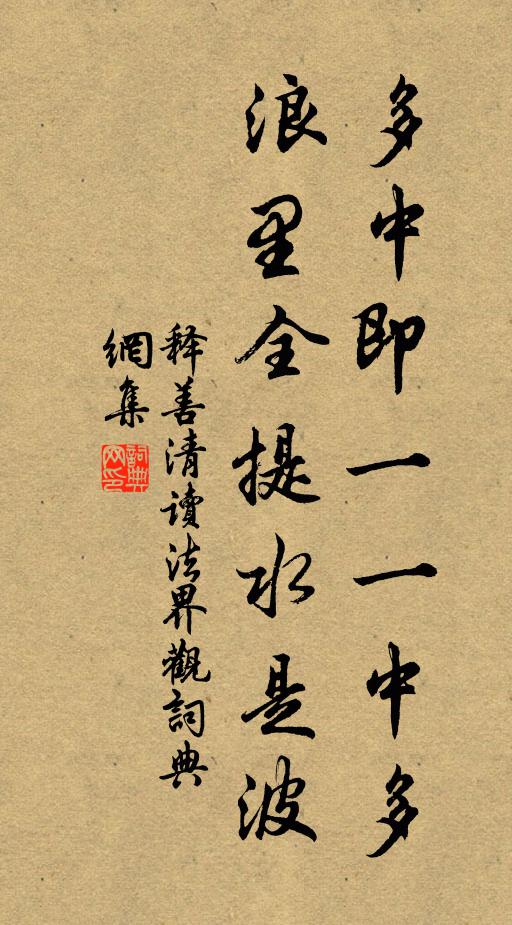 多中即一一中多
浪里全提水是波
释善清讀法界觀詞典
網集
詞典
网印